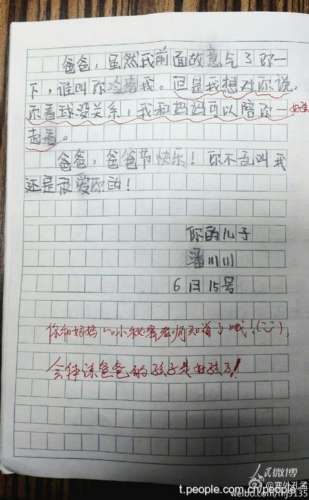 爸爸，虽然我前面故意气了你一
下，谁叫你没我。但是我想对你说，
你看球没关系，我和妈妈可以陪你一
起看。
爸爸，爸爸节快乐！你不互叫我
还是很爱你的！
你的儿子
潘川川
6月15号
你和妈妈的小秘密老师知道了哦！
会体谅爸爸的孩子是好孩子！
人民微博
t.people.com.cn/people
weibo.com/nfj9135